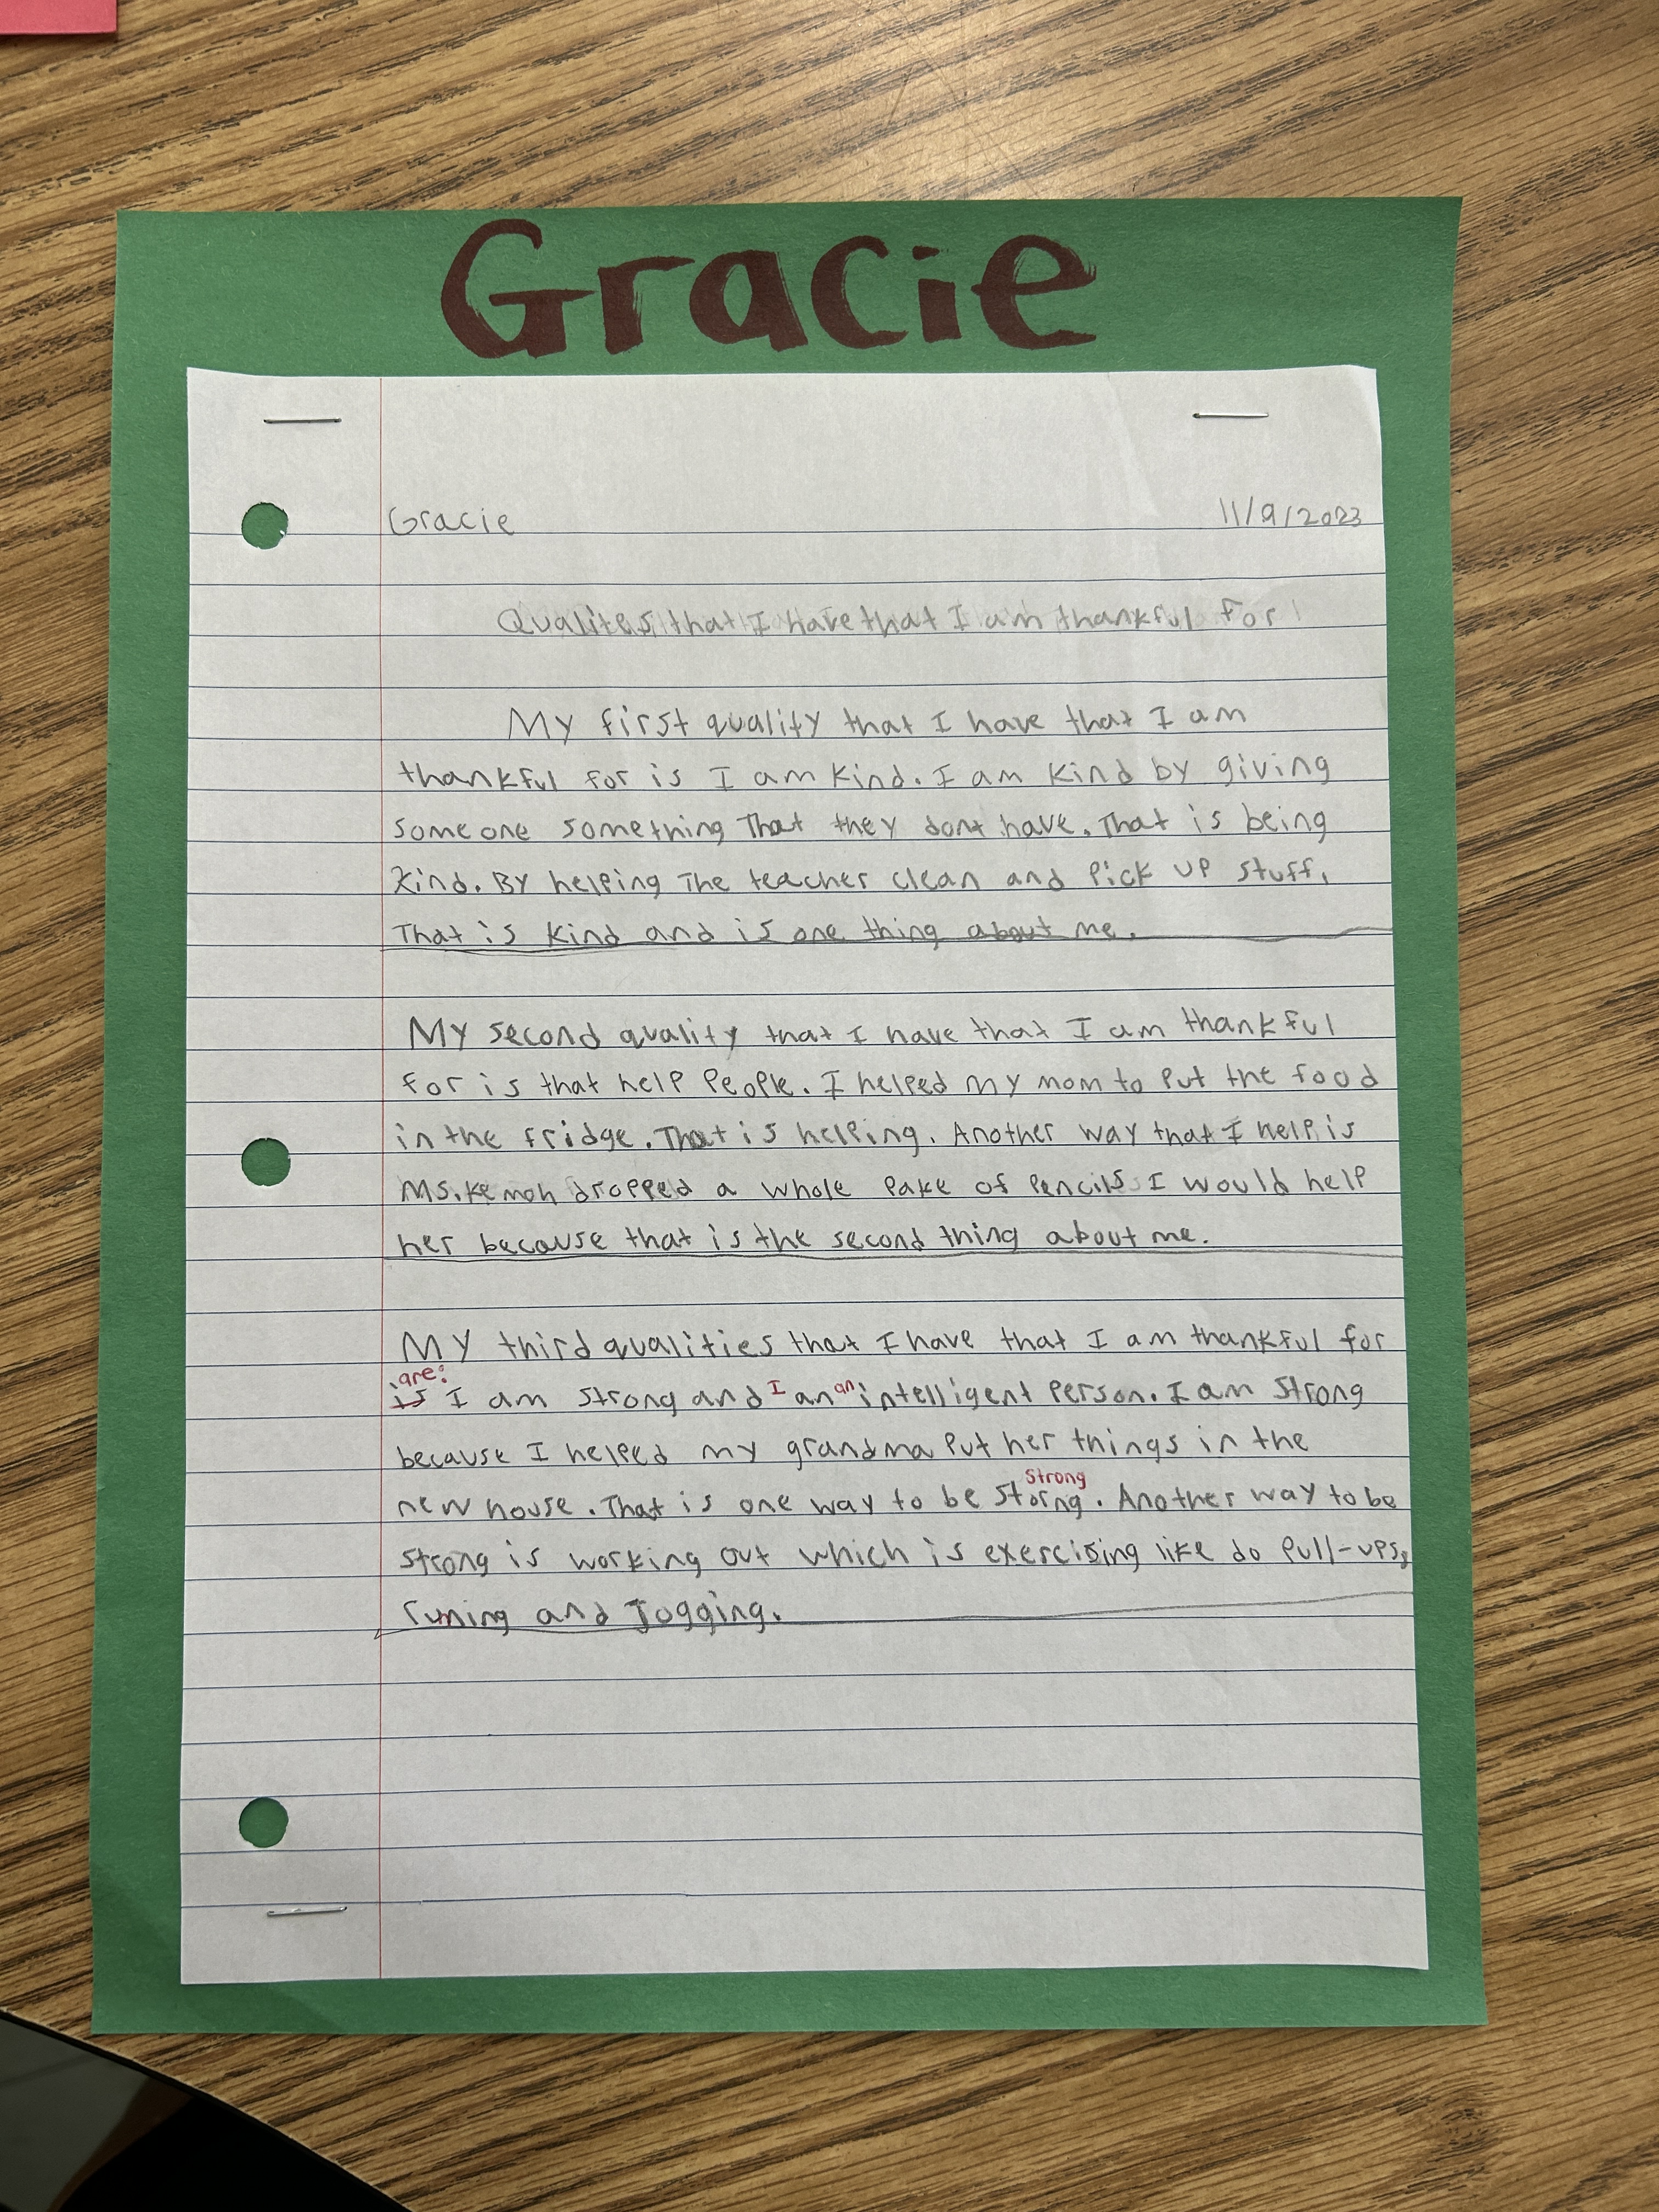 Gracie
Gracie 11/9/2023
Qualites that I have that I am thankful for
My first quality that I have that I am
thankful for is I am kind. I am kind by giving
someone something That they dont have. That is being
kind. By helping The teacher clean and Pick up stuff.
That is kind and is one thing about me.
My second quality that I have that I am thankful
for is that help People. I helped my mom to put the food
in the fridge. That is helping. Another way that I help is
Ms. Kemoh dropped a whole pake of pencils I would help
her because that is the second thing about me.
My third qualities that I have that I am thankful for
are:
is I am strong and I an an intelligent person. I am strong
because I helped my grandma put her things in the
Strong
new house. That is one way to be storng. Another way to be
strong is working out which is exercising like do Pull-ups,
runing and Jogging.